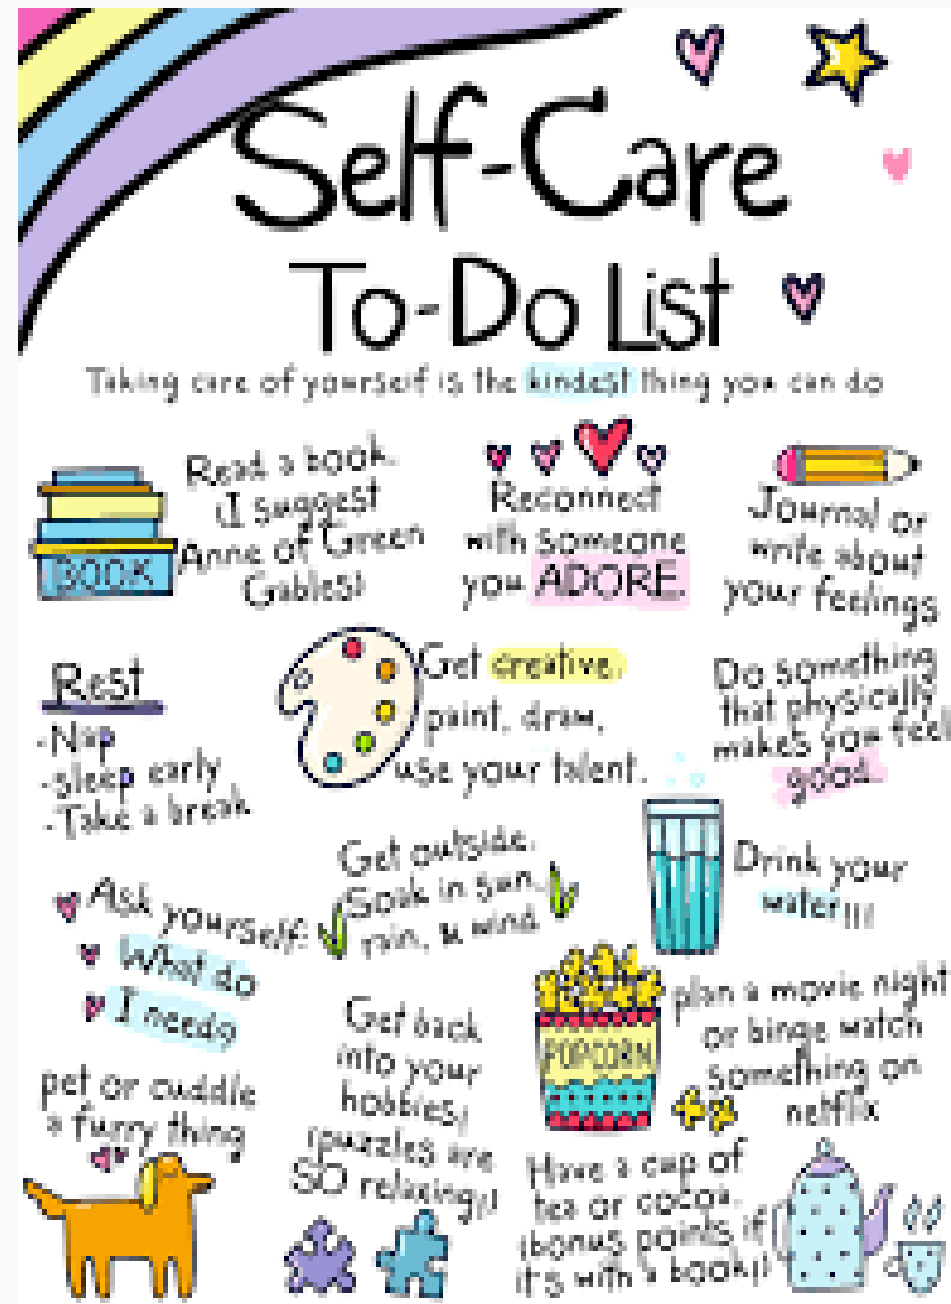 Self-Care
To-Do List
Taking care of yourself is the kindest thing you can do
BOOK
Read a book.
(I suggest
Anne of Green
Gables)
Reconnect
with someone
you ADORE.
Journal or
write about
your feelings
Rest
-Nap
-sleep early
-Take a break
Get creative.
paint, draw,
use your talent.
Do something
that physically
makes you feel
good.
Ask yourself:
What do
I need?
Get outside.
Soak in sun,
rain, & wind
Drink your
water!!!
pet or cuddle
a furry thing
Get back
into your
hobbies!
(puzzles are
SO relaxing!)
POPCORN
plan a movie night
or binge watch
something on
netflix
Have a cup of
tea or cocoa.
(bonus points if
it's with a book!)